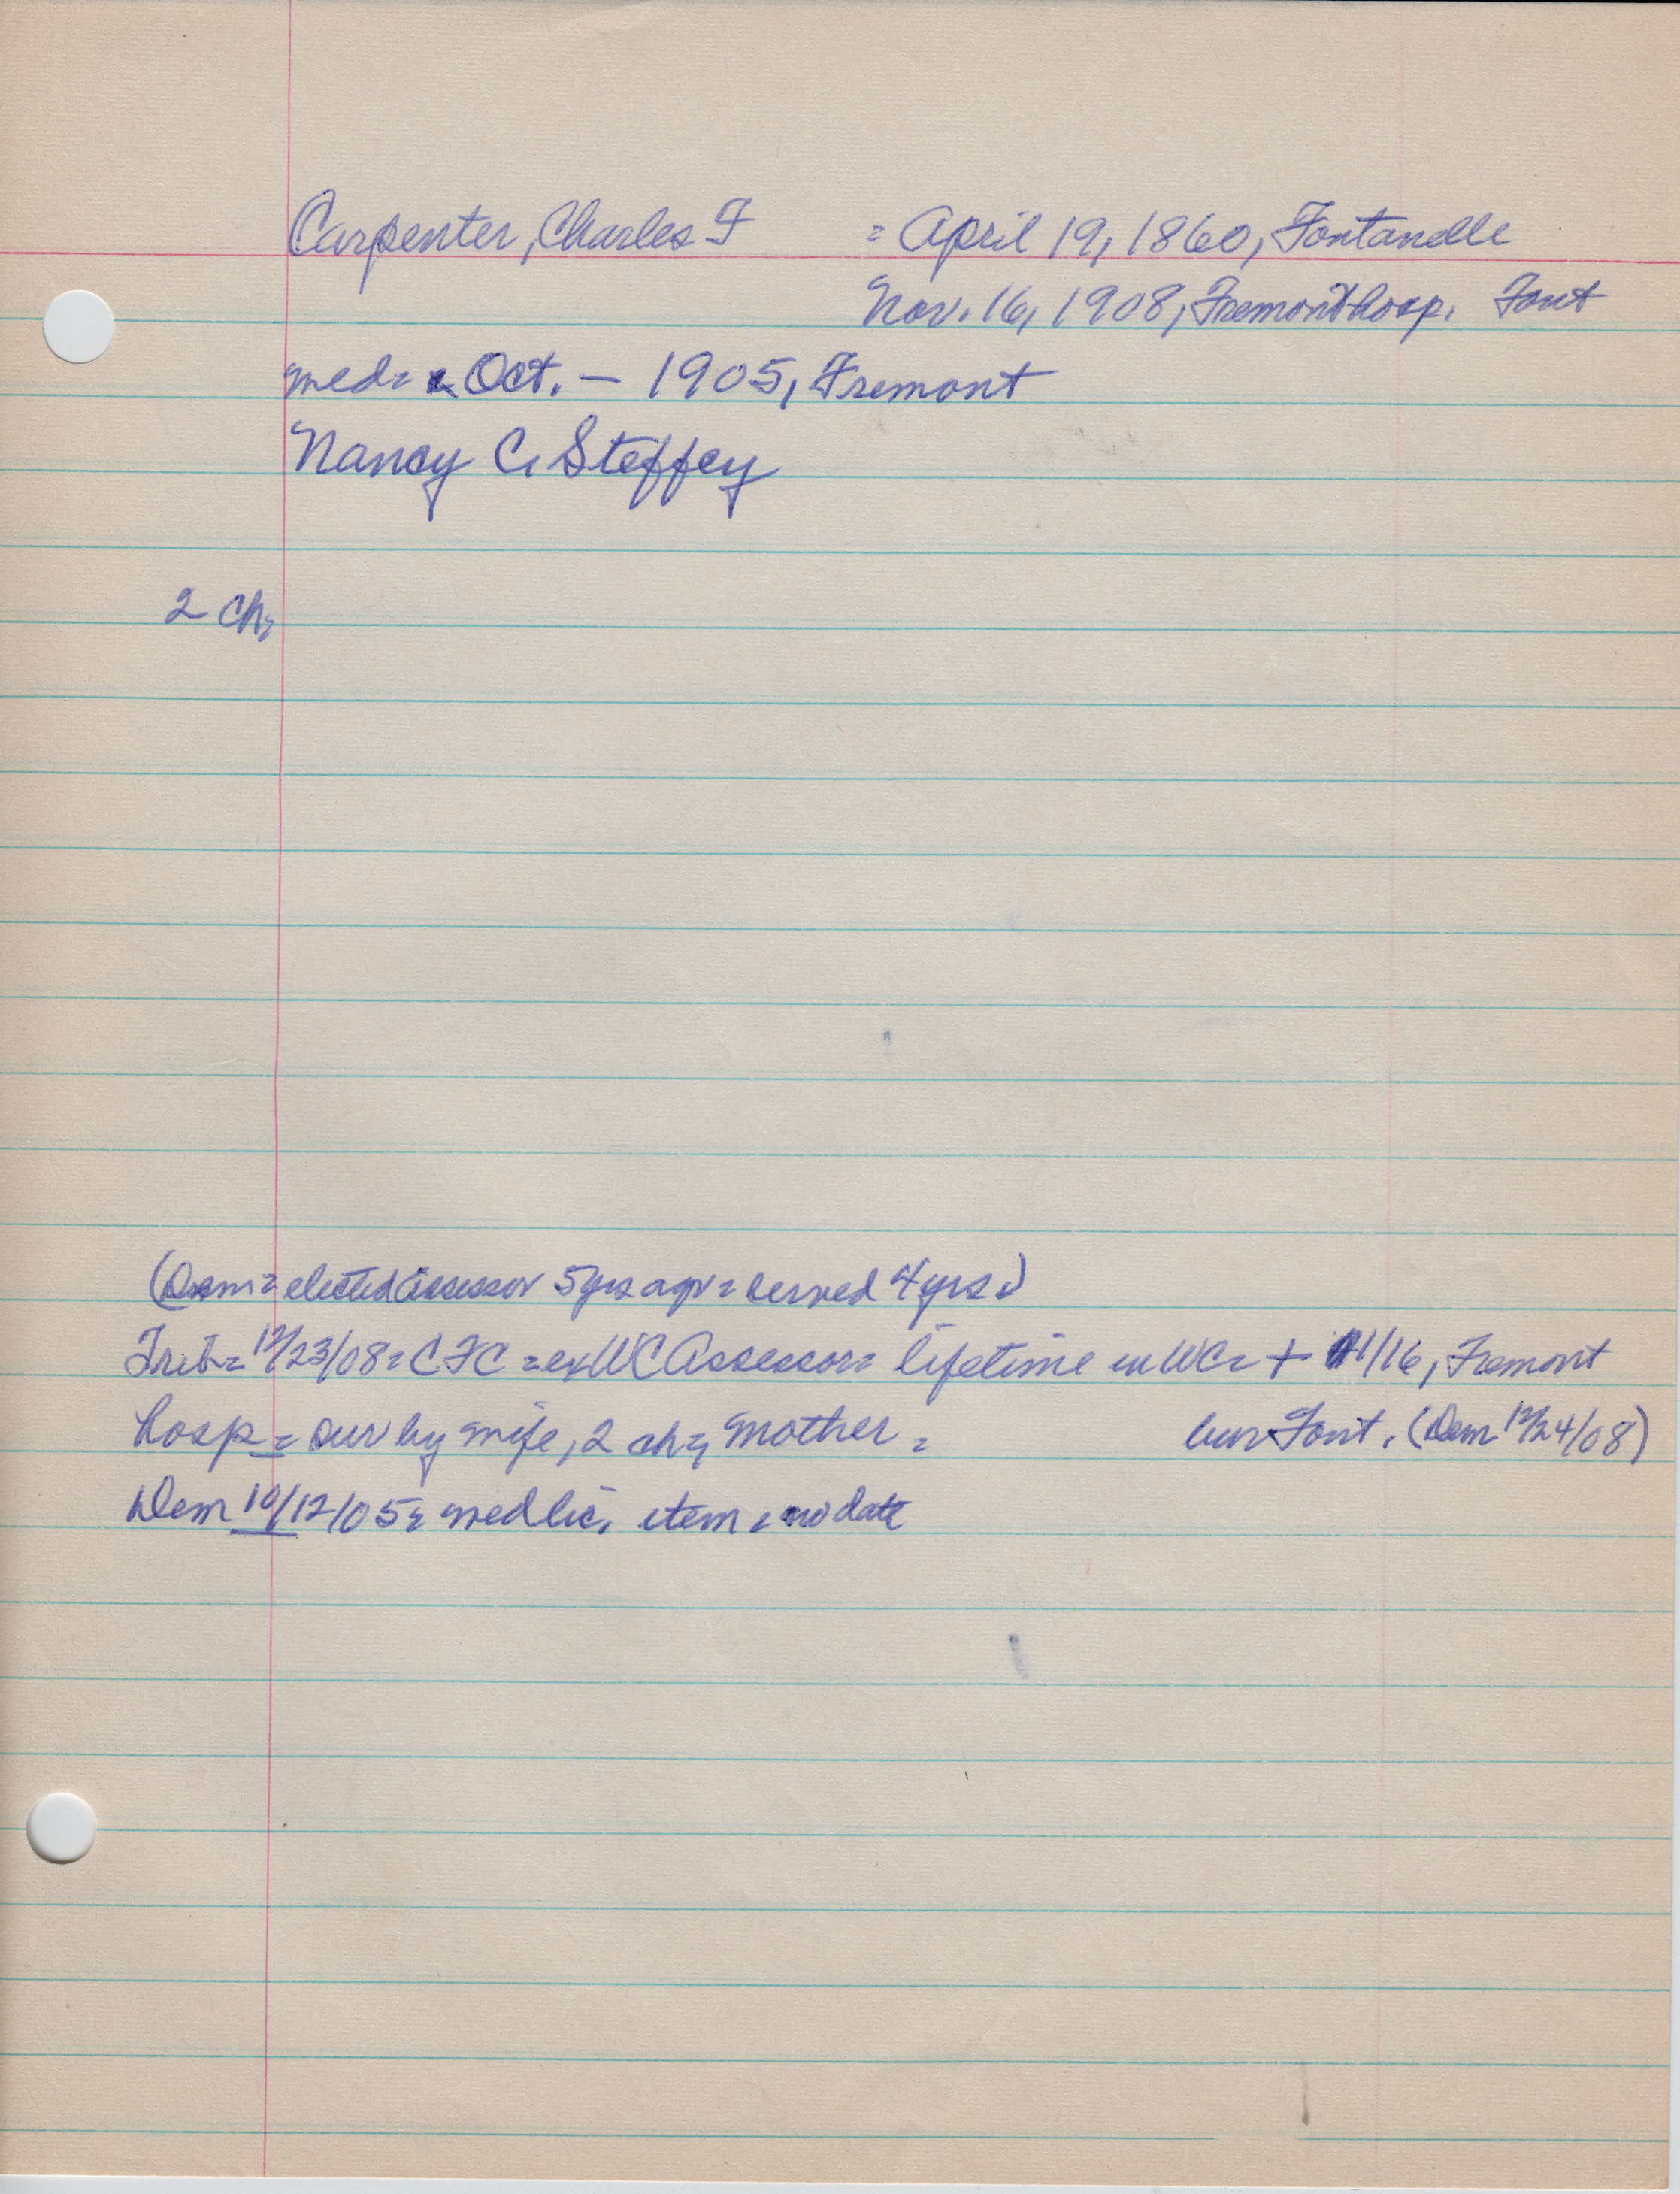 Carpenter, Charles F = April 19, 1860, Fontanelle
Nov. 16, 1908, Fremont hosp. Font
med = Oct. — 1905, Fremont
Nancy C. Steffey
2 ch,
(Dem = elected Assessor 5 yrs ago = served 4 yrs.)
Trib = 12/23/08 = CFC = ex WC Assessor = lifetime in WC = + 11/16, Fremont
hosp = sur by wife, 2 ch, mother = bur Font. (Dem 12/24/08)
Dem 10/12/05 = med lic. item = no date